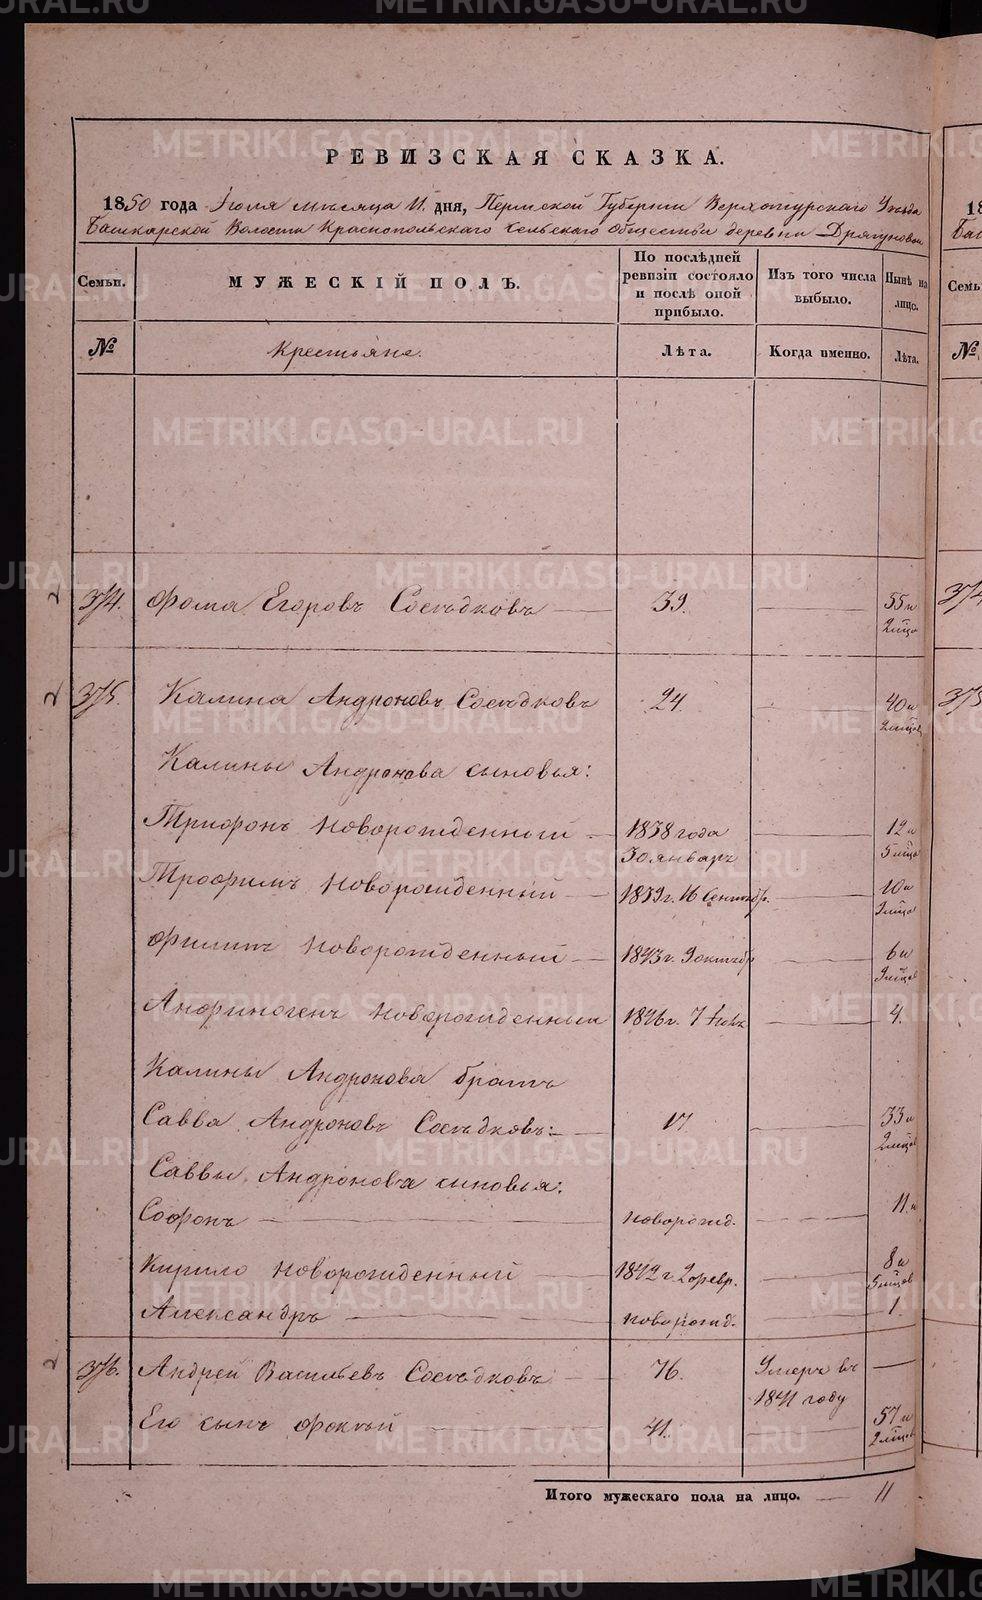 METRIKI.GASO-URAL.RU
РЕВИЗСКАЯ СКАЗКА.
1850 года Июля мѣсяца 11 дня, Пермской Губернии Верхотурскаго Уѣзда
Башкарской Волости Краснопольскаго Сельскаго Общества деревни
Семьи. МУЖЕСКІЙ ПОЛЪ. По послѣдней ревизіи состояло и послѣ оной прибыло. Изъ того числа выбыло. Нынѣ на лицо.
№ Крестьяне. Лѣта. Когда именно. Лѣта.
2 374. Фома Егоровъ Сосѣдковъ 39. 55 и
2 375. Калина Андроновъ Сосѣдковъ 24 40 и
Калины Андронова сыновья:
Трифонъ новорожденный 1838 года 12 и
30 январъ
Трофимъ новорожденный 1839 г. 16 Сентябр. 10 и
Филипъ новорожденный 1843 г. 9 октябр 6 и
Анфиногенъ новорожденный 1846 г. 7 4.
Калины Андронова братъ
Савва Андроновъ Сосѣдковъ: 17 33 и
Саввы Андронова сыновья:
Софонъ новорожд. 11 и
Кирило новорожденный 1842 г. 2 февр. 8 и
Александръ новорожд. 1.
2 376. Андрей Васильевъ Сосѣдковъ 76. Умеръ въ
1841 году
Его сынъ 41. 57 и
Итого мужескаго пола на лицо. 11